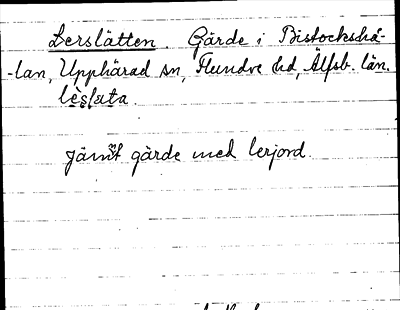 Lerslätten. Gärde i Bistockshå-
-lan, Upphärad sn, Flundre hd, Älfsb. län.
lèslata.
jämt gärde med lerjord.